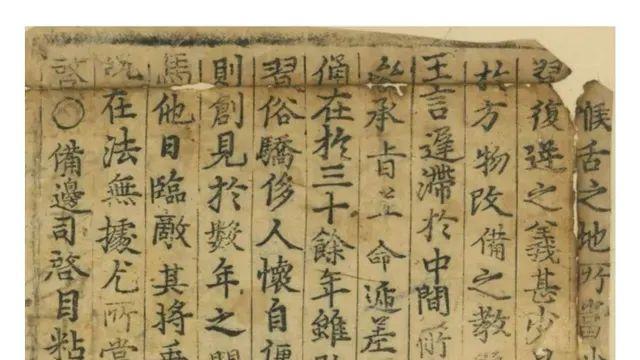 候舌之地所當
復選之義甚少
於方物改備之教
王言遲滯於中間所
承旨並命遞差
備在於三十餘年雖
習俗驕侈人懷自便
則創見於數年之
馬他日臨敵其將
在法無據尤所當
啓○備邊司啓目粘